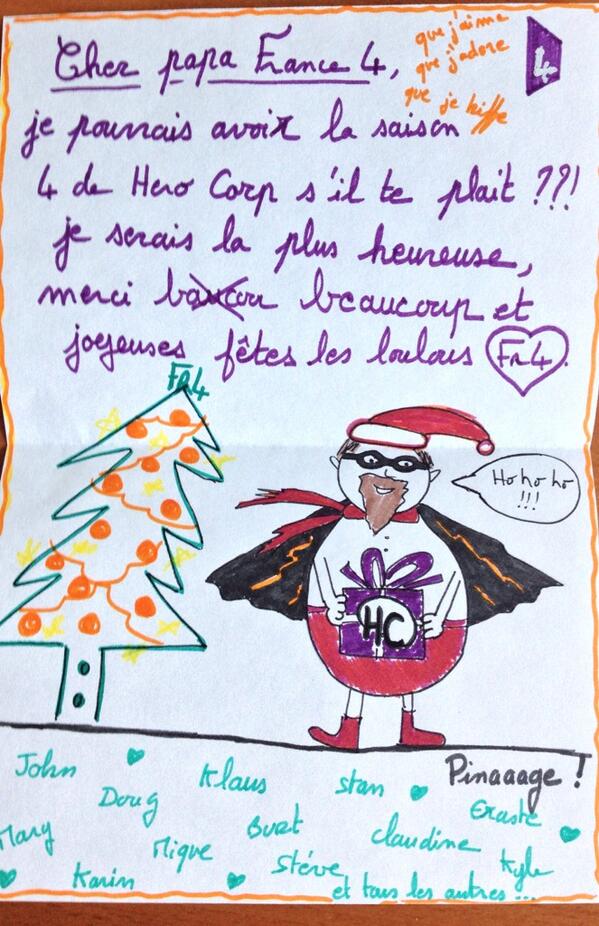 Cher papa France 4,
que j'aime
que j'adore
que je kiffe
4
je pourrais avoir la saison
4 de Hero Corp s'il te plait ??!
je serais la plus heureuse,
merci beaucoup et
joyeuses fêtes les loulous Fr4.
FR4
Ho ho ho
!!!
HC
Pinaaage !
John Klaus Stan
Doug Eraste
Mary Burt Claudine
Mique Stéve Kyle
Karin et tous les autres ...